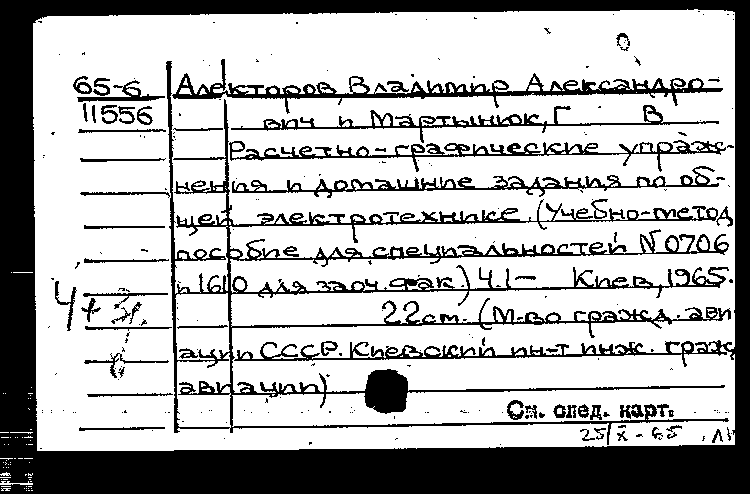 65-6. Алекторов, Владимир Александро-
11556 вич и Мартынюк, Г В
Расчетно-графические упраж-
нения и домашние задания по об-
щей электротехнике. (Учебно-метод
пособие для специальностей N0706
и 1610 для заоч. фак.) Ч.1- Киев, 1965.
4+
22 см. (М-во гражд. ави
ации СССР. Киевский ин-т инж. гражд
авиации)
См. след. карт.
25/X-65